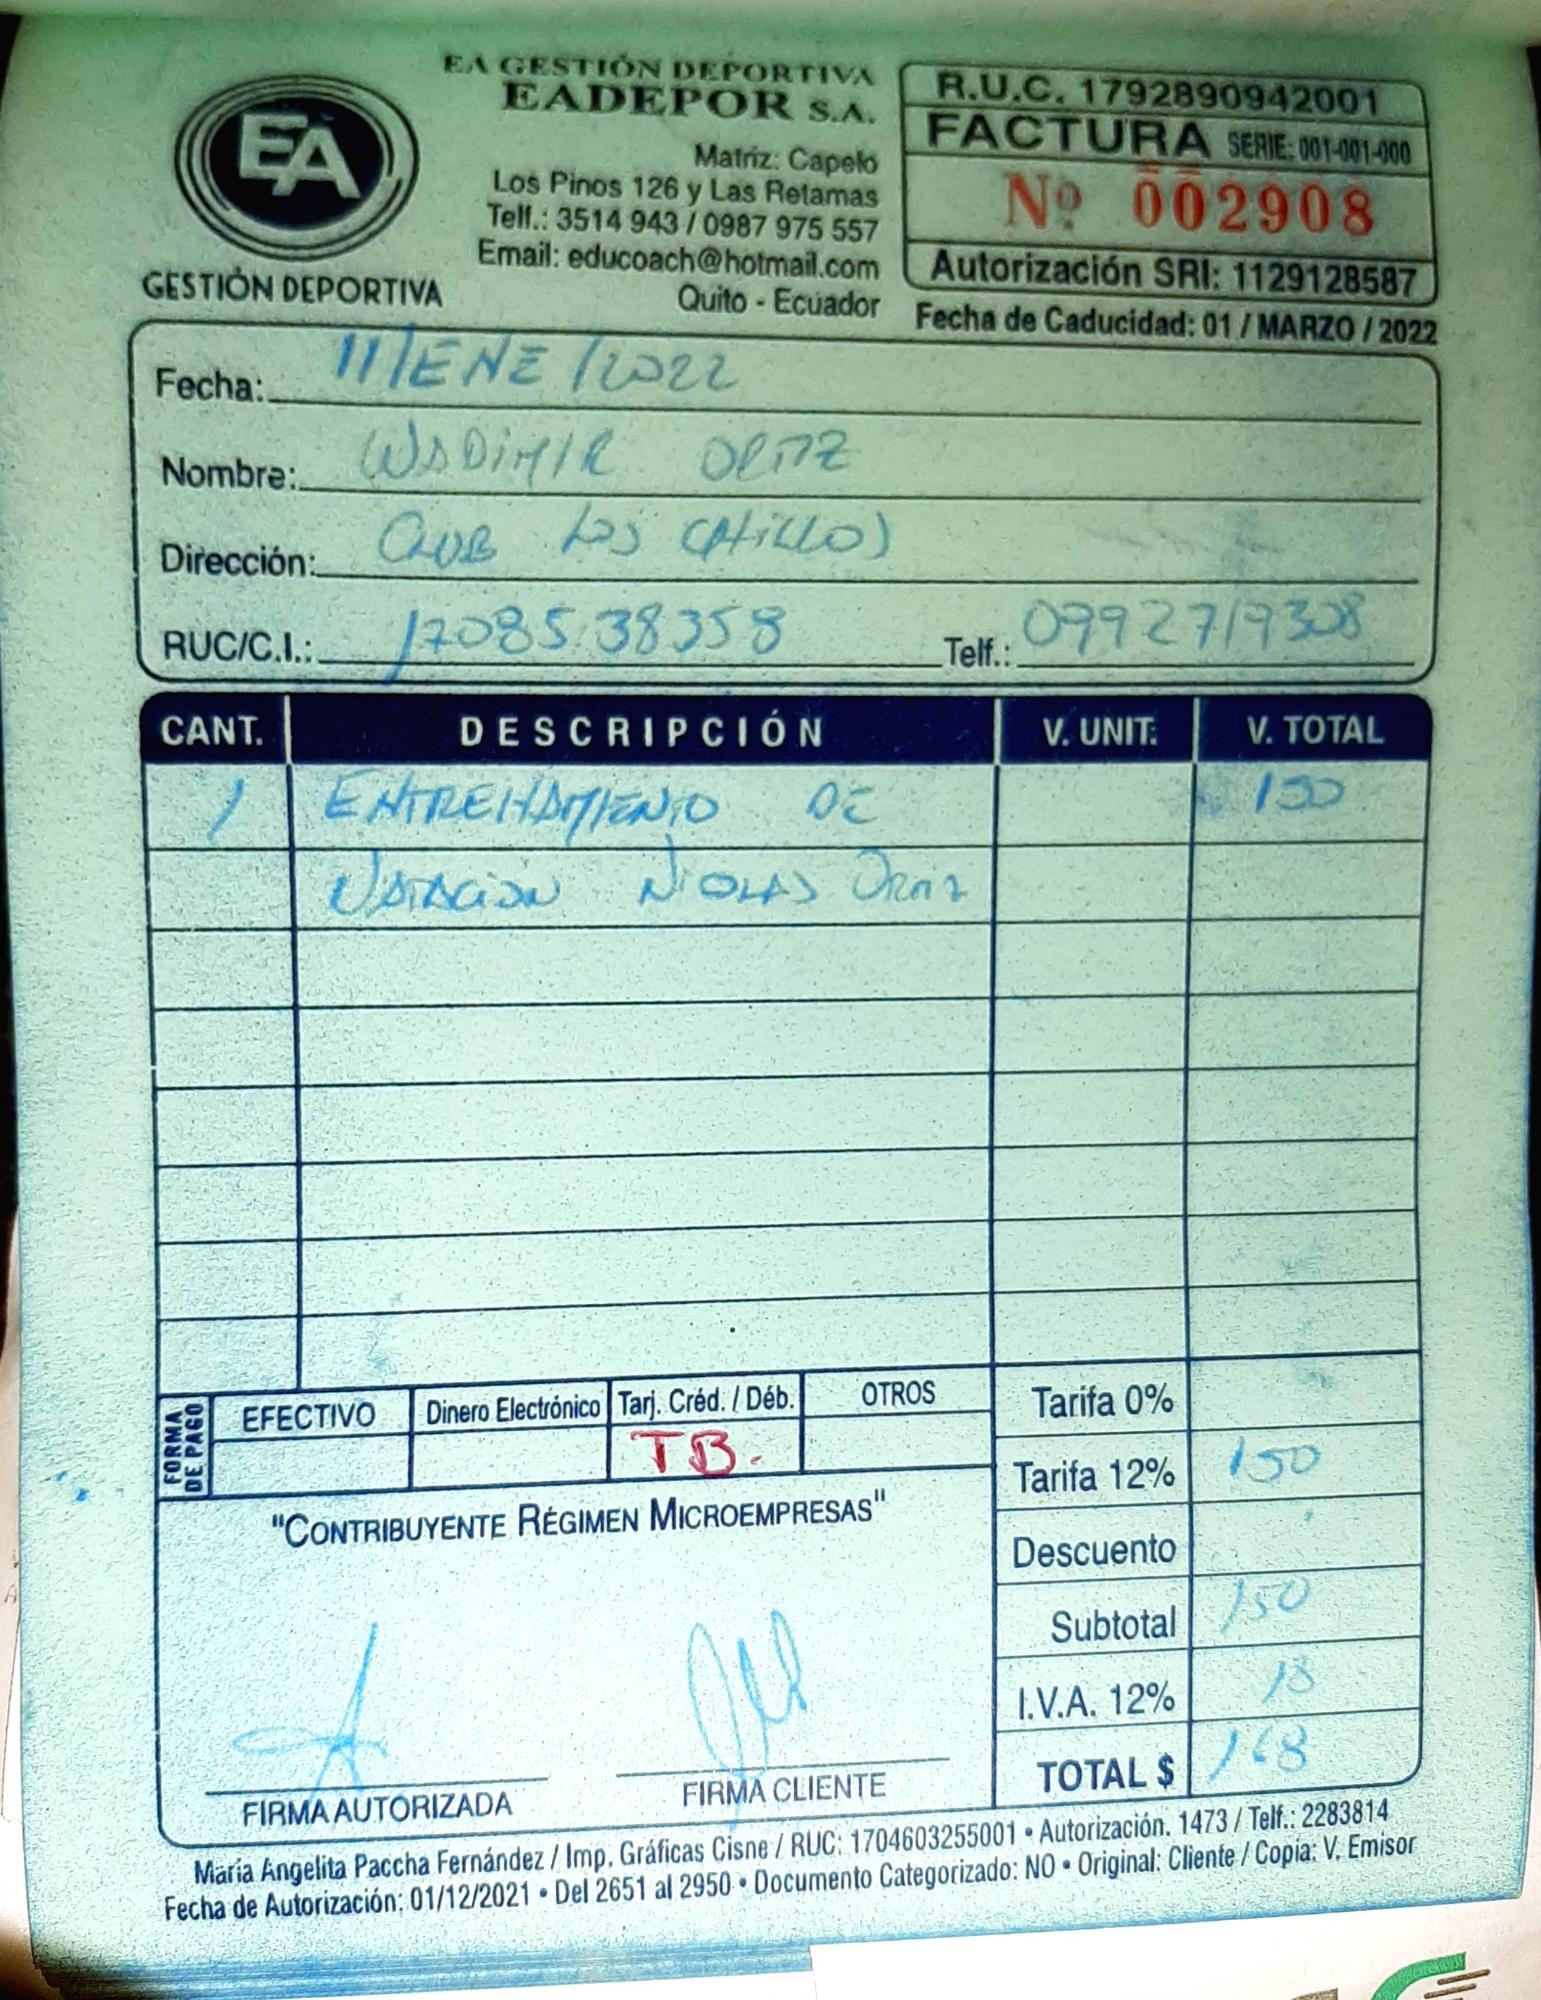 EA GESTIÓN DEPORTIVA
EADEPOR S.A.
EA
GESTIÓN DEPORTIVA
Matriz: Capelo
Los Pinos 126 y Las Retamas
Telf.: 3514 943 / 0987 975 557
Email: educoach@hotmail.com
Quito - Ecuador
R.U.C. 1792890942001
FACTURA SERIE: 001-001-000
Nº 002908
Autorización SRI: 1129128587
Fecha de Caducidad: 01 / MARZO / 2022
Fecha: 11/ENE/2022
Nombre: WADIMIR ORTIZ
Dirección: CLUB LOS CHILLOS
RUC/C.I.: 1708538358 Telf.: 0992719308
CANT. DESCRIPCIÓN V. UNIT. V. TOTAL
1 ENTRENAMIENTO DE 150
NATACION NICOLAS ORTIZ
FORMA DE PAGO
EFECTIVO Dinero Electrónico Tarj. Créd. / Déb. OTROS
TB.
Tarifa 0%
Tarifa 12% 150
Descuento
Subtotal 150
I.V.A. 12% 18
TOTAL $ 168
"CONTRIBUYENTE RÉGIMEN MICROEMPRESAS"
FIRMA AUTORIZADA FIRMA CLIENTE
María Angelita Paccha Fernández / Imp. Gráficas Cisne / RUC: 1704603255001 • Autorización. 1473 / Telf.: 2283814
Fecha de Autorización: 01/12/2021 • Del 2651 al 2950 • Documento Categorizado: NO • Original: Cliente / Copia: V. Emisor